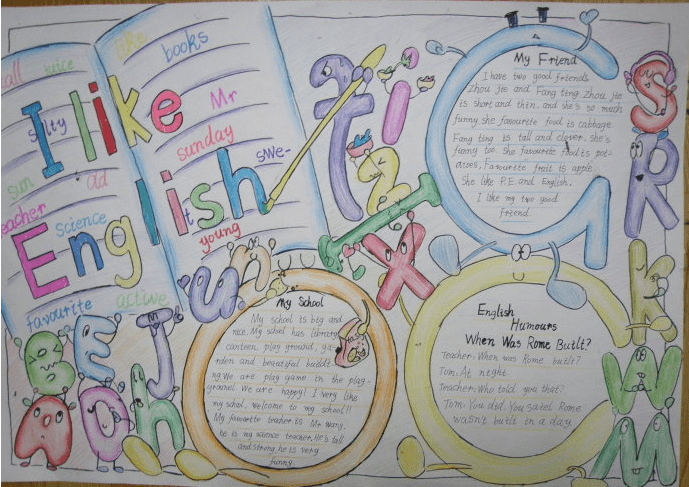 call juice like books
I like
salty Mr
sunday
sun ad swe-
teacher
English
science it
young
favourite active
My Friend
I have two good friends
Zhou jie and Fang ting Zhou jie
is short and thin. and she's so much
funny she favourite food is cabbage.
Fang ting is tall and clever. she's
funny too. She favourite food is pot-
atoes, Favourite fruit is apple.
She like P.E. and English.
I like my two good
friend.
My School
My school is big and
nice. My school has library
canteen play ground, ga-
rden and beautiful buildi
ng We are play game in the play-
ground. We are happy! I very like
my school. Welcome to my school!!
My favourite teacher is Mr Wang,
he is my science teacher. He's tall
and strong, he is very
funny.
English
Humours
When Was Rome Built?
Teacher: When was Rome built?
Tom: At night.
Teacher: Who told you that?
Tom: You did. You saied Rome
wasn't built in a day.
t i
z
x
u n
S
R
k
W
M
B E J
A O h